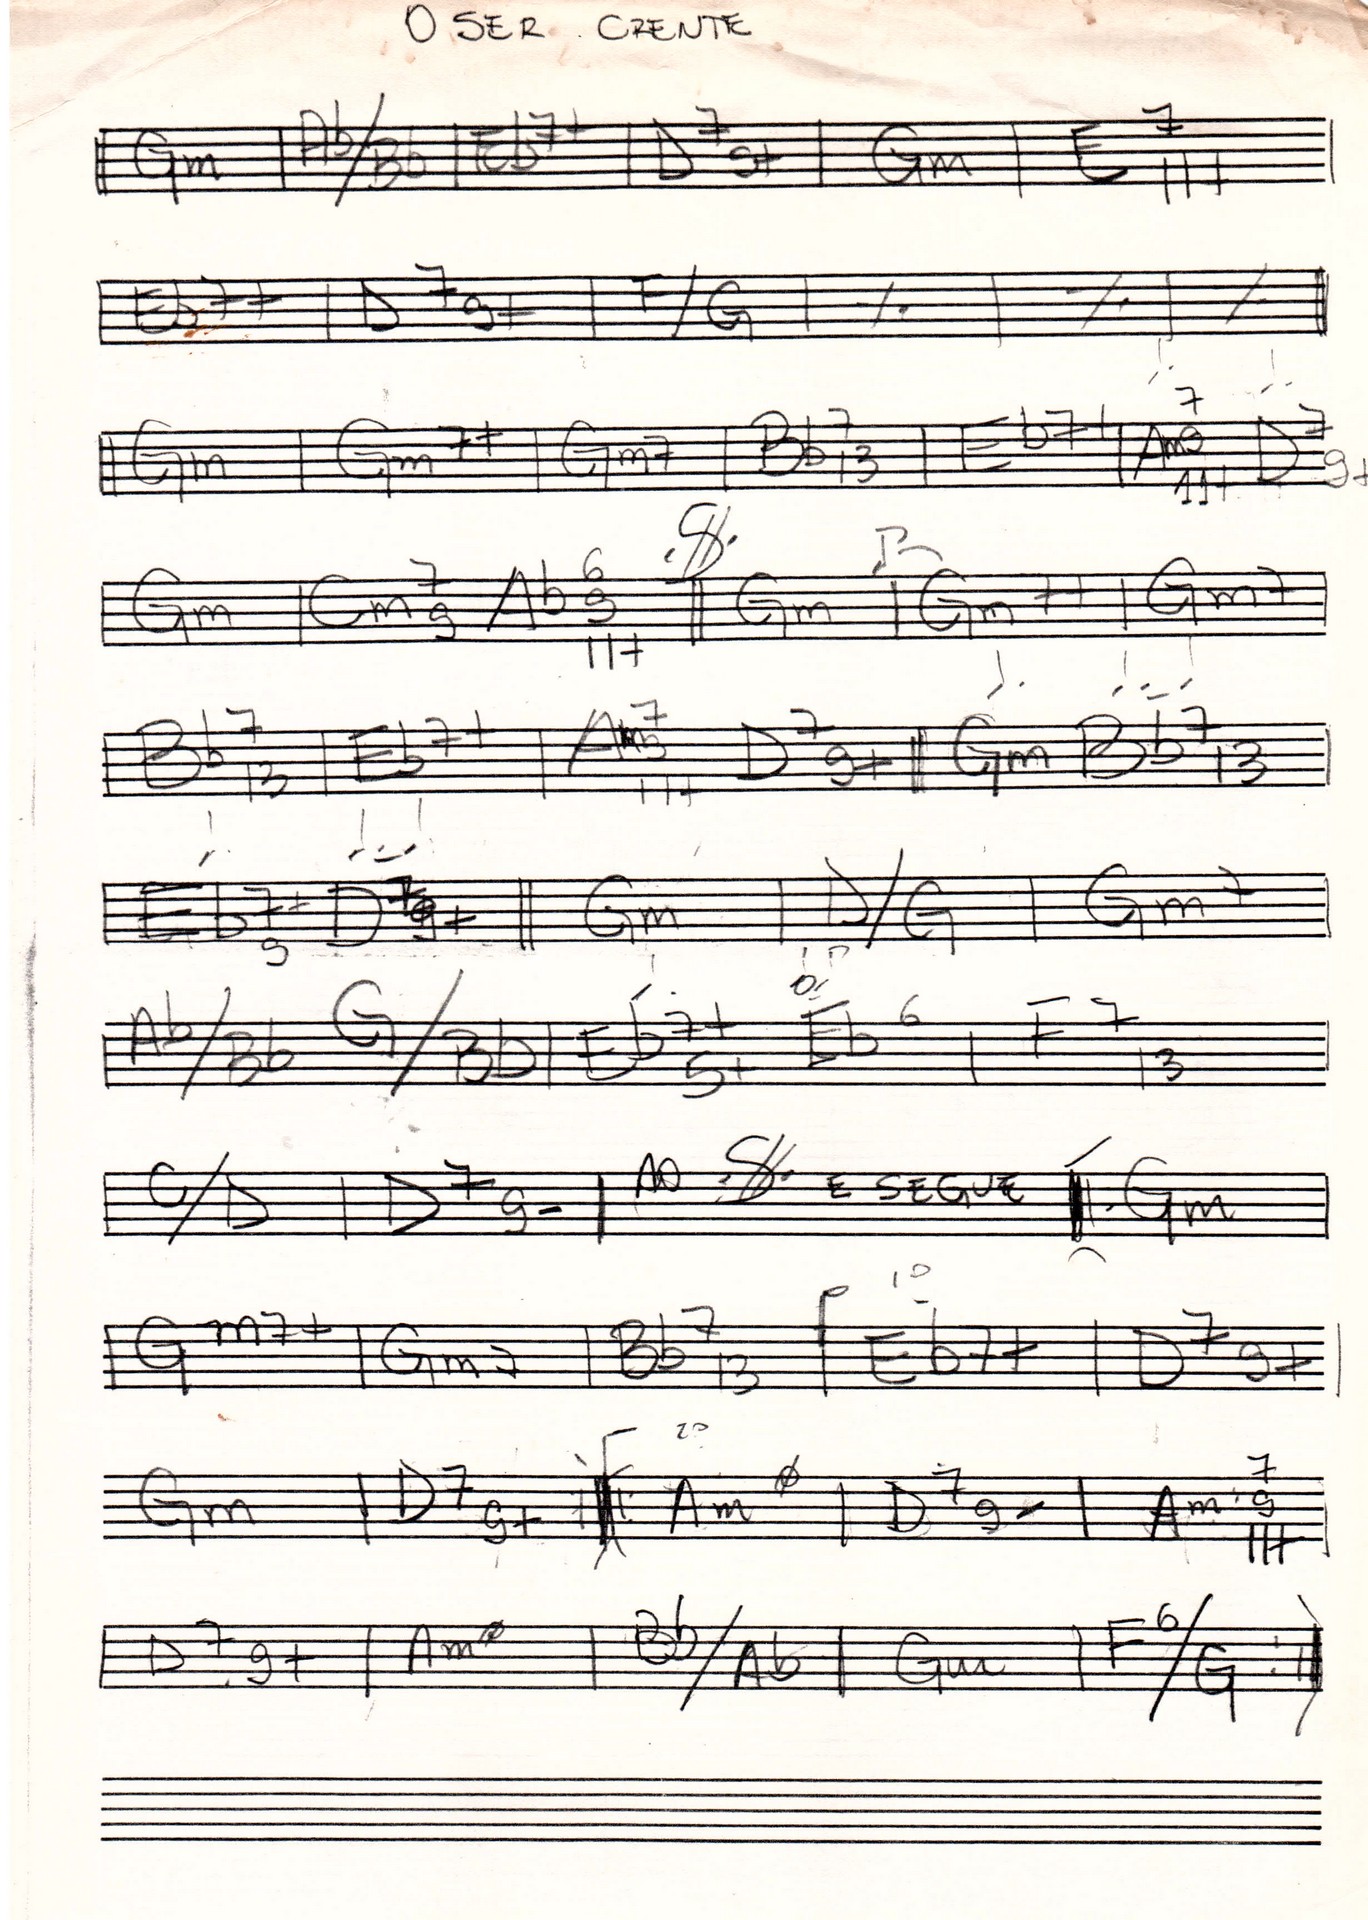 O SER CRENTE
Gm | Ab/Bb | Eb7+ | D7 9+ | Gm | E7 11+
Eb7+ | D7 9+ | F/G | ٪ | ٪ | ٪
Gm | Gm7+ | Gm7 | Bb7 13 | Eb7+ | Am7 9 11+ D7 9+
Gm | Cm7 9 Ab6 9 11+ || 𝄋 Gm | Gm7+ | Gm7
Bb7 13 | Eb7+ | Am7 11+ D7 9+ || Gm Bb7 13
Eb7+ 9 D7 9+ || Gm | D/G | Gm7
Ab/Bb G/Bb | Eb7+ 5+ Eb6 | F7 13
C/D | D7 9- | AO 𝄋 E SEGUE ||: Gm
1º
Gm7+ | Gm7 | Bb7 13 | Eb7+ | D7 9+
2º
Gm | D7 9+ :||: Amø | D7 9- | Am7 9 11+
D7 9+ | Amø | Bb/Ab | Gm | F6/G :||